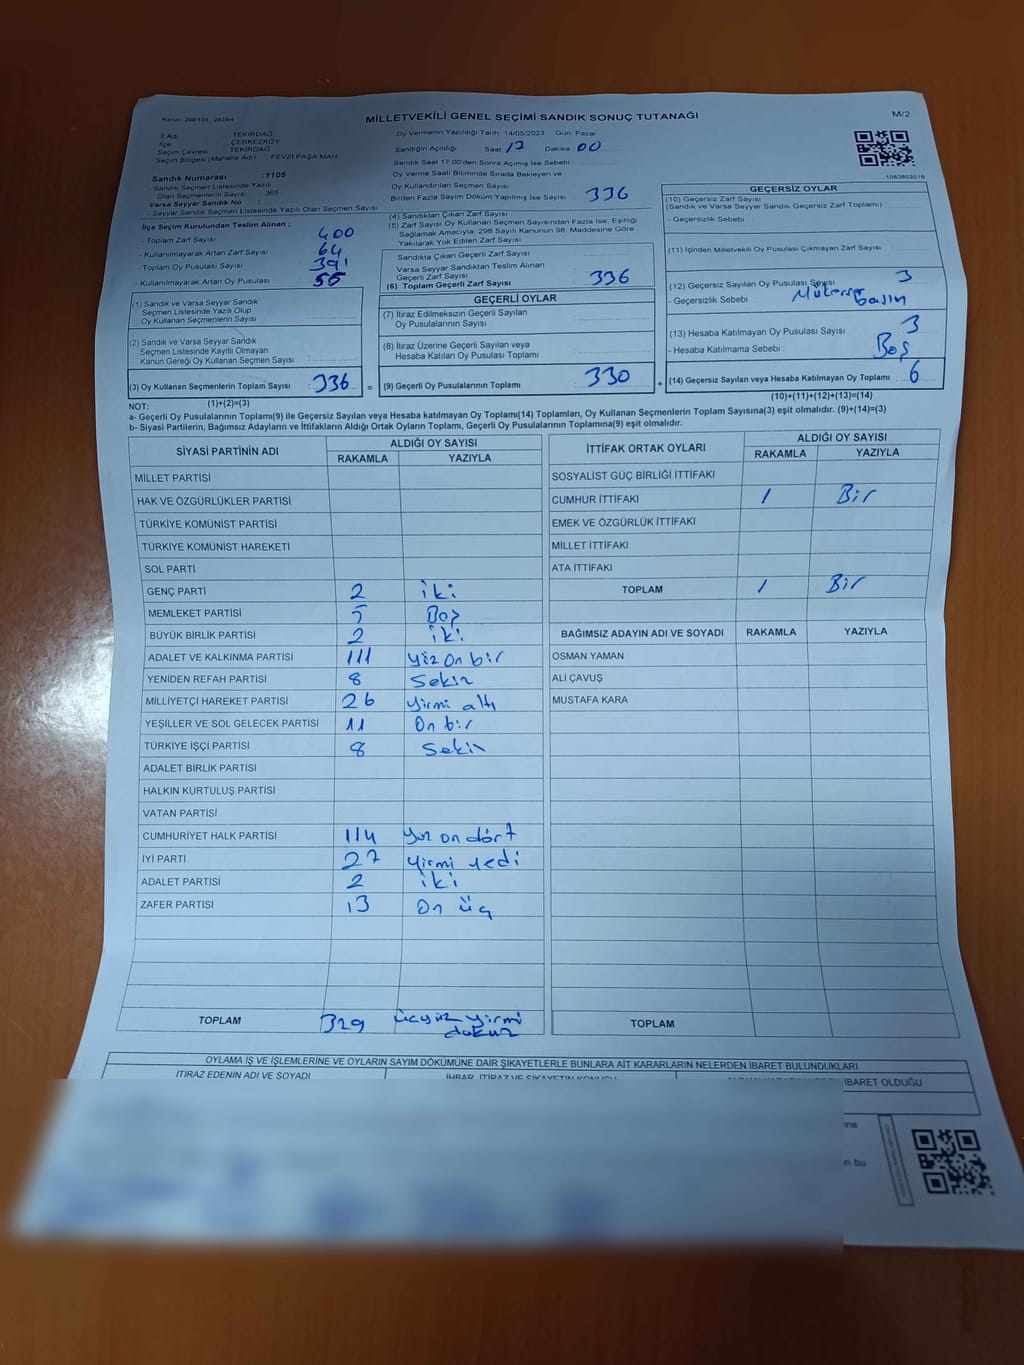 Kanun: 298/105 , 2839/4
MİLLETVEKİLİ GENEL SEÇİMİ SANDIK SONUÇ TUTANAĞI
M/2
İl Adı : TEKİRDAĞ
İlçe : ÇERKEZKÖY
Seçim Çevresi : TEKİRDAĞ
Seçim Bölgesi (Mahalle Adı) : FEVZİ PAŞA MAH
Sandık Numarası : 1105
- Sandık Seçmen Listesinde Yazılı
Olan Seçmenlerin Sayısı : 365
Varsa Seyyar Sandık No :
- Seyyar Sandık Seçmen Listesinde Yazılı Olan Seçmen Sayısı
Oy Vermenin Yapıldığı Tarih : 14/05/2023 Gün: Pazar
Sandığın Açıldığı Saat : 17 Dakika : 00
Sandık Saat 17:00'den Sonra Açılmış İse Sebebi :
Oy Verme Saati Bitiminde Sırada Bekleyen ve
Oy Kullandırılan Seçmen Sayısı
Birden Fazla Sayım Döküm Yapılmış İse Sayısı : 336
1083802016
İlçe Seçim Kurulundan Teslim Alınan ;
- Toplam Zarf Sayısı : 400
- Kullanılmayarak Artan Zarf Sayısı : 64
- Toplam Oy Pusulası Sayısı : 391
- Kullanılmayarak Artan Oy Pusulası : 55
(1) Sandık ve Varsa Seyyar Sandık
Seçmen Listesinde Yazılı Olup
Oy Kullanan Seçmenlerin Sayısı
(2) Sandık ve Varsa Seyyar Sandık
Seçmen Listesinde Kayıtlı Olmayan
Kanun Gereği Oy Kullanan Seçmen Sayısı
(3) Oy Kullanan Seçmenlerin Toplam Sayısı : 336 =
(1)+(2)=(3)
(4) Sandıktan Çıkan Zarf Sayısı
(5) Zarf Sayısı Oy Kullanan Seçmen Sayısından Fazla İse, Eşitliği
Sağlamak Amacıyla, 298 Sayılı Kanunun 98. Maddesine Göre
Yakılarak Yok Edilen Zarf Sayısı
Sandıkta Çıkan Geçerli Zarf Sayısı
Varsa Seyyar Sandıktan Teslim Alınan
Geçerli Zarf Sayısı
(6) Toplam Geçerli Zarf Sayısı : 336
GEÇERLİ OYLAR
(7) İtiraz Edilmeksizin Geçerli Sayılan
Oy Pusulalarının Sayısı
(8) İtiraz Üzerine Geçerli Sayılan veya
Hesaba Katılan Oy Pusulası Toplamı
(9) Geçerli Oy Pusulalarının Toplamı : 330 +
GEÇERSİZ OYLAR
(10) Geçersiz Zarf Sayısı
(Sandık ve Varsa Seyyar Sandık Geçersiz Zarf Toplamı)
- Geçersizlik Sebebi :
(11) İçinden Milletvekili Oy Pusulası Çıkmayan Zarf Sayısı
(12) Geçersiz Sayılan Oy Pusulası Sayısı : 3
- Geçersizlik Sebebi :
(13) Hesaba Katılmayan Oy Pusulası Sayısı : 3
- Hesaba Katılmama Sebebi : Boş
(14) Geçersiz Sayılan veya Hesaba Katılmayan Oy Toplamı : 6
(10)+(11)+(12)+(13)=(14)
NOT:
a- Geçerli Oy Pusulalarının Toplamı(9) ile Geçersiz Sayılan veya Hesaba katılmayan Oy Toplamı(14) Toplamları, Oy Kullanan Seçmenlerin Toplam Sayısına(3) eşit olmalıdır. (9)+(14)=(3)
b- Siyasi Partilerin, Bağımsız Adayların ve İttifakların Aldığı Ortak Oyların Toplamı, Geçerli Oy Pusulalarının Toplamına(9) eşit olmalıdır.
SİYASİ PARTİNİN ADI ALDIĞI OY SAYISI
RAKAMLA YAZIYLA
MİLLET PARTİSİ
HAK VE ÖZGÜRLÜKLER PARTİSİ
TÜRKİYE KOMÜNİST PARTİSİ
TÜRKİYE KOMÜNİST HAREKETİ
SOL PARTİ
GENÇ PARTİ 2 iki
MEMLEKET PARTİSİ 5 Beş
BÜYÜK BİRLİK PARTİSİ 2 iki
ADALET VE KALKINMA PARTİSİ 111 yüz on bir
YENİDEN REFAH PARTİSİ 8 Sekiz
MİLLİYETÇİ HAREKET PARTİSİ 26 yirmi altı
YEŞİLLER VE SOL GELECEK PARTİSİ 11 On bir
TÜRKİYE İŞÇİ PARTİSİ 8 Sekiz
ADALET BİRLİK PARTİSİ
HALKIN KURTULUŞ PARTİSİ
VATAN PARTİSİ
CUMHURİYET HALK PARTİSİ 114 yüz on dört
İYİ PARTİ 27 yirmi yedi
ADALET PARTİSİ 2 iki
ZAFER PARTİSİ 13 On üç
TOPLAM 329 üçyüz yirmi
dokuz
İTTİFAK ORTAK OYLARI ALDIĞI OY SAYISI
RAKAMLA YAZIYLA
SOSYALİST GÜÇ BİRLİĞİ İTTİFAKI
CUMHUR İTTİFAKI 1 Bir
EMEK VE ÖZGÜRLÜK İTTİFAKI
MİLLET İTTİFAKI
ATA İTTİFAKI
TOPLAM 1 Bir
BAĞIMSIZ ADAYIN ADI VE SOYADI RAKAMLA YAZIYLA
OSMAN YAMAN
ALİ ÇAVUŞ
MUSTAFA KARA
TOPLAM
OYLAMA İŞ VE İŞLEMLERİNE VE OYLARIN SAYIM DÖKÜMÜNE DAİR ŞİKAYETLERLE BUNLARA AİT KARARLARIN NELERDEN İBARET BULUNDUKLARI
İTİRAZ EDENİN ADI VE SOYADI İHBAR, İTİRAZ VE ŞİKAYETİN KONUSU İBARET OLDUĞU